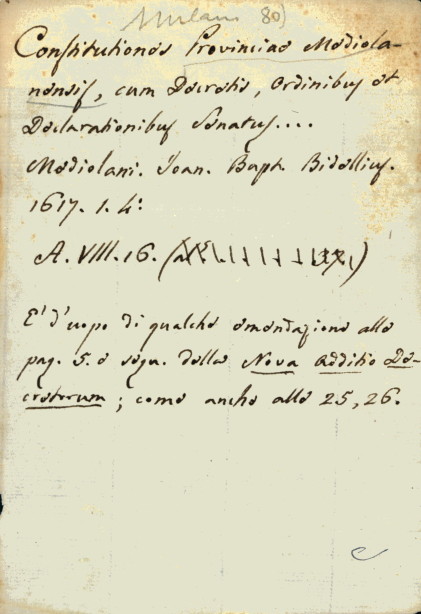 Milano 80)
Constitutiones Provinciae Mediola-
nensis, cum Decretis, Ordinibus et
Declarationibus Senatus....
Mediolani. Joan. Bapt. Bidellius.
1617. 1. 4:
A. VIII. 16.
E' d'uopo di qualche emendazione alle
pag. 5. e segu. della Nova Additio De-
cretorum; come anche alle 25, 26.